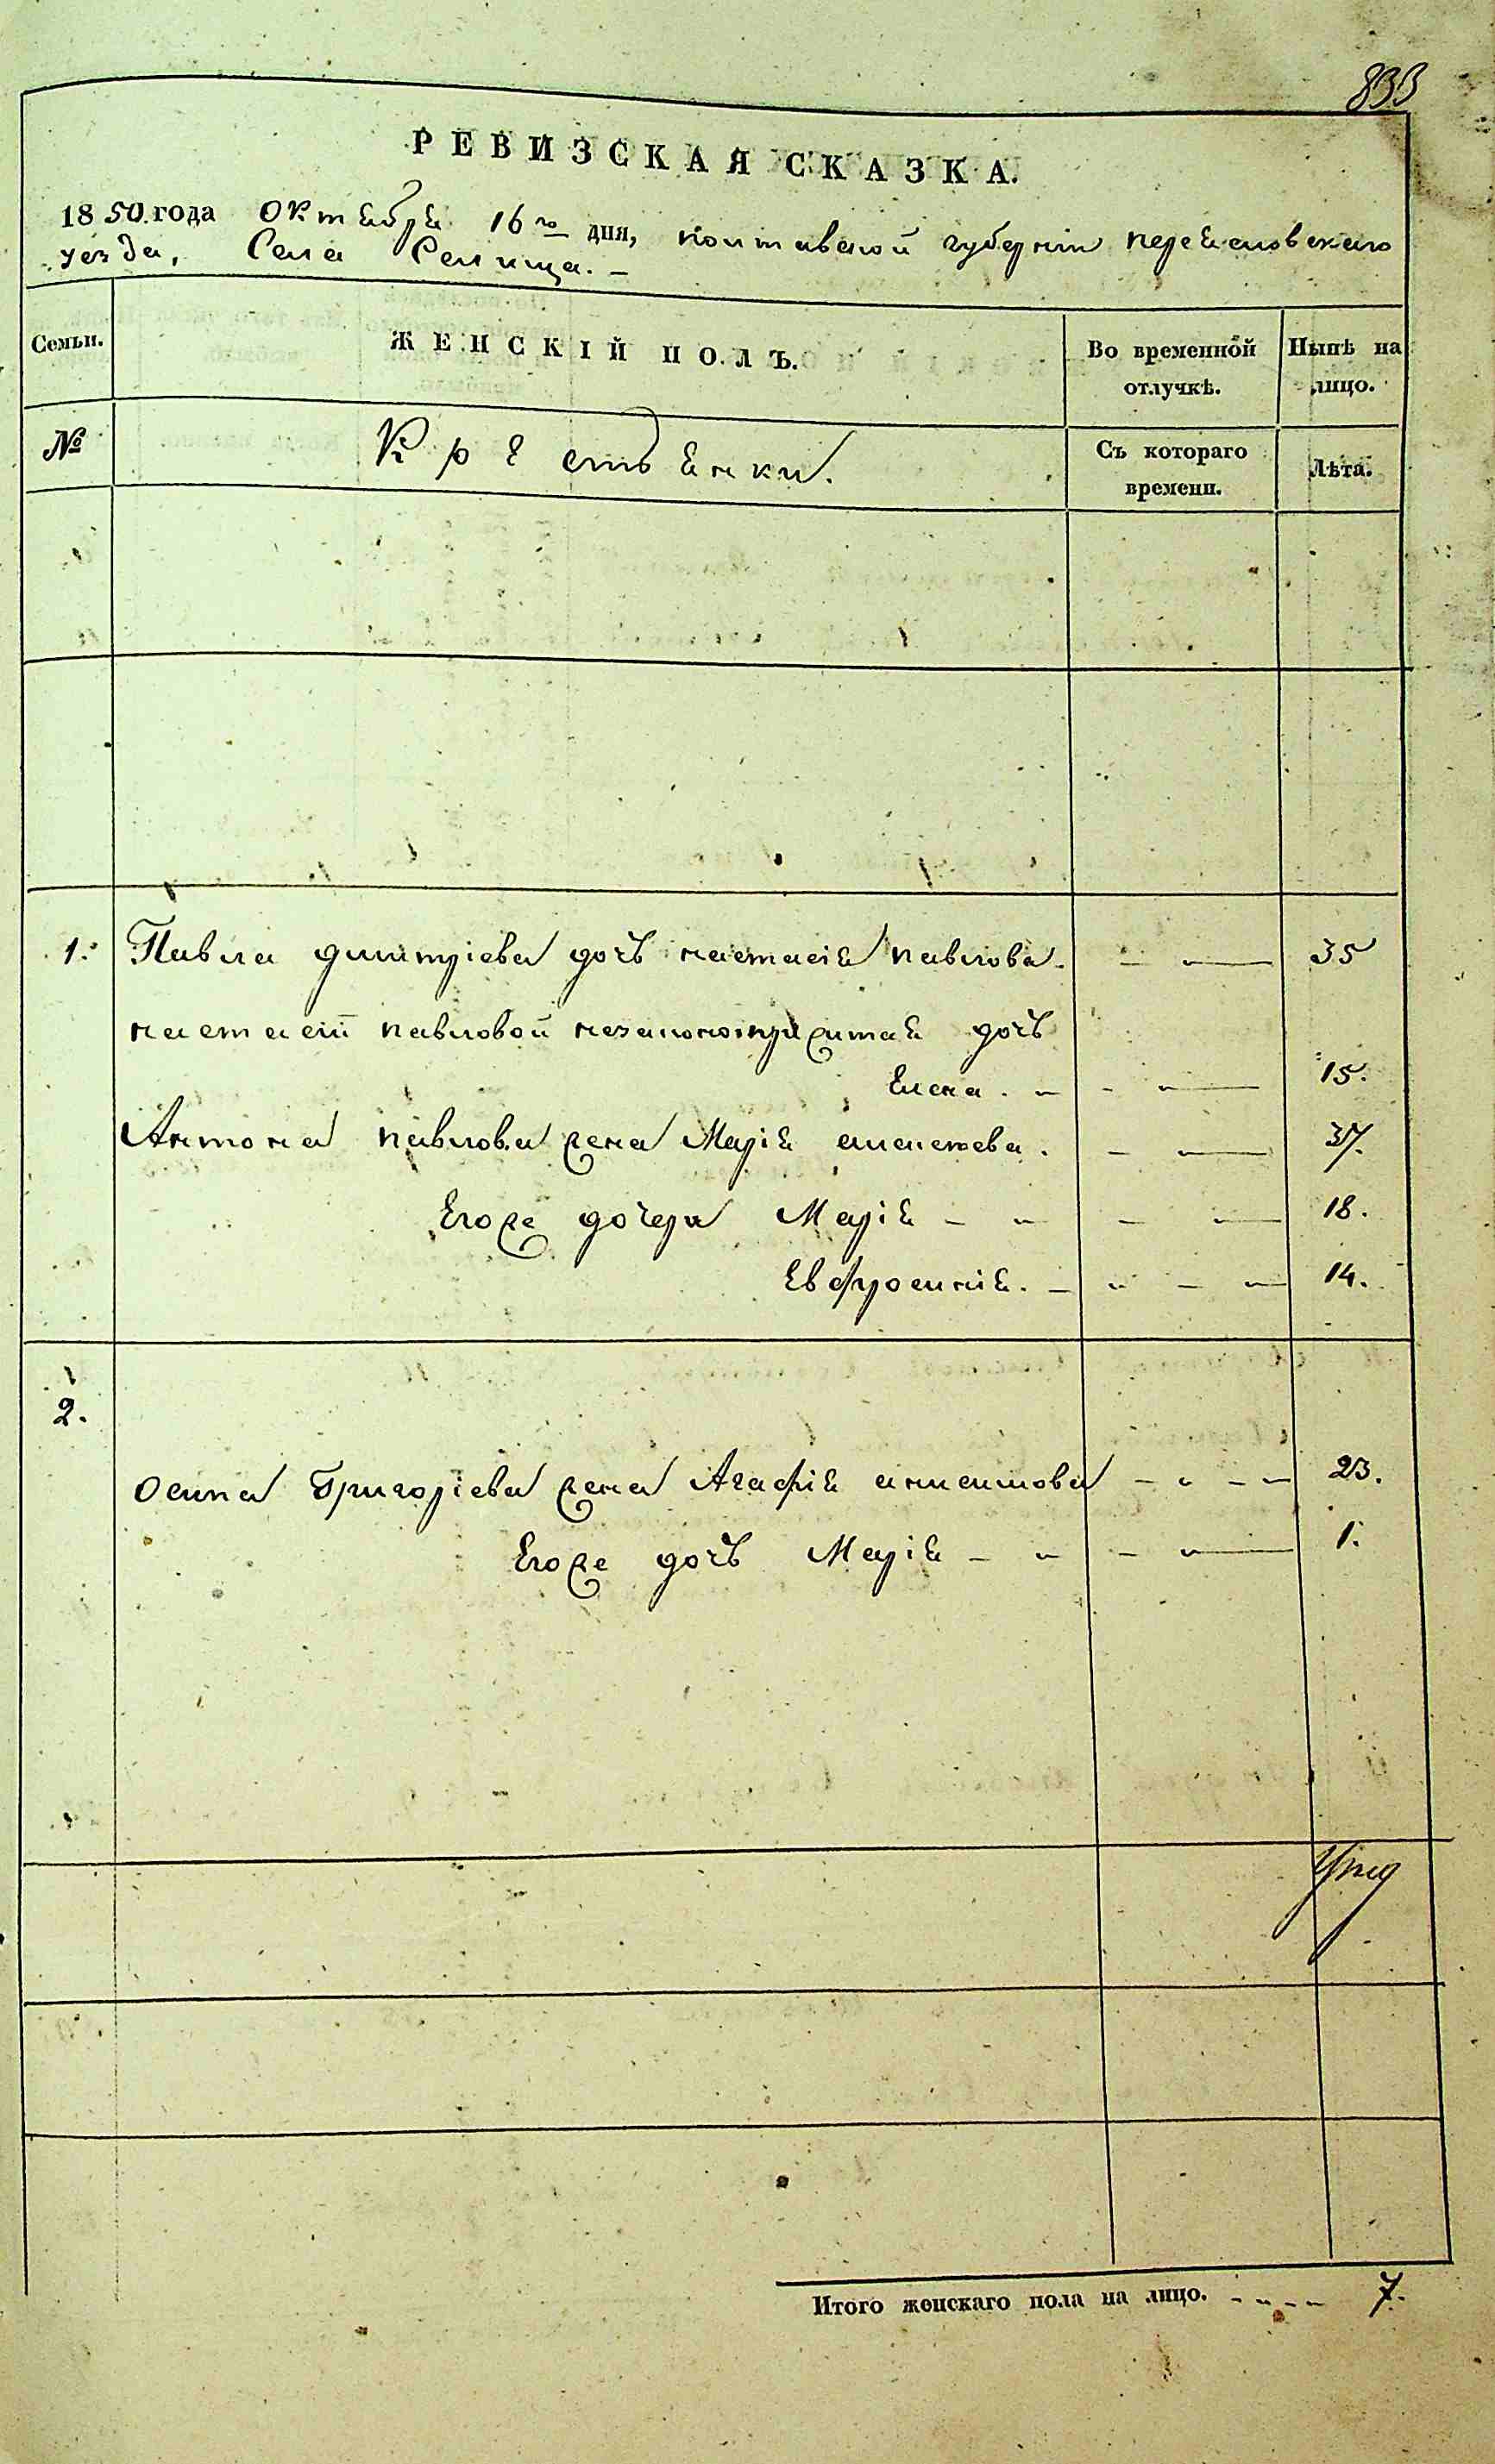 833
РЕВИЗСКАЯ СКАЗКА.
1850. года Октября 16го дня, полтавской губерніи переясловскаго
уезда, Села Селища. –
Семьи. ЖЕНСКІЙ ПОЛЪ. Во временной отлучкѣ. Нынѣ на лицо.
№ Крестьянки. Съ котораго времени. Лѣта.
1. Павла дмитріева дочь настасія павлова. 35
настасіи павловой незаконноприжитая дочь
Елена. 15.
Антона павлова жена Марія алексеева. 37.
Египже дочери Марія 18.
Евфросинія. 14.
2.
Осипа Григоріева жена Агафія анисимова 23.
Егоже дочь Марія 1.
Итого женскаго пола на лицо. 7.